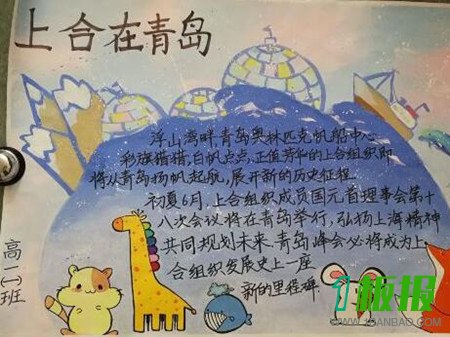 上合在青岛
浮山湾畔,青岛奥林匹克帆船中心
彩旗猎猎,白帆点点,正值芳华的上合组织即
将从青岛扬帆起航,展开新的历史征程.
初夏6月,上合组织成员国元首理事会第十
八次会议将在青岛举行,弘扬上海精神
共同规划未来.青岛峰会必将成为上.
合组织发展史上一座
新的里程碑.
高一(一)班
板报
WWW.1BANBAO.COM